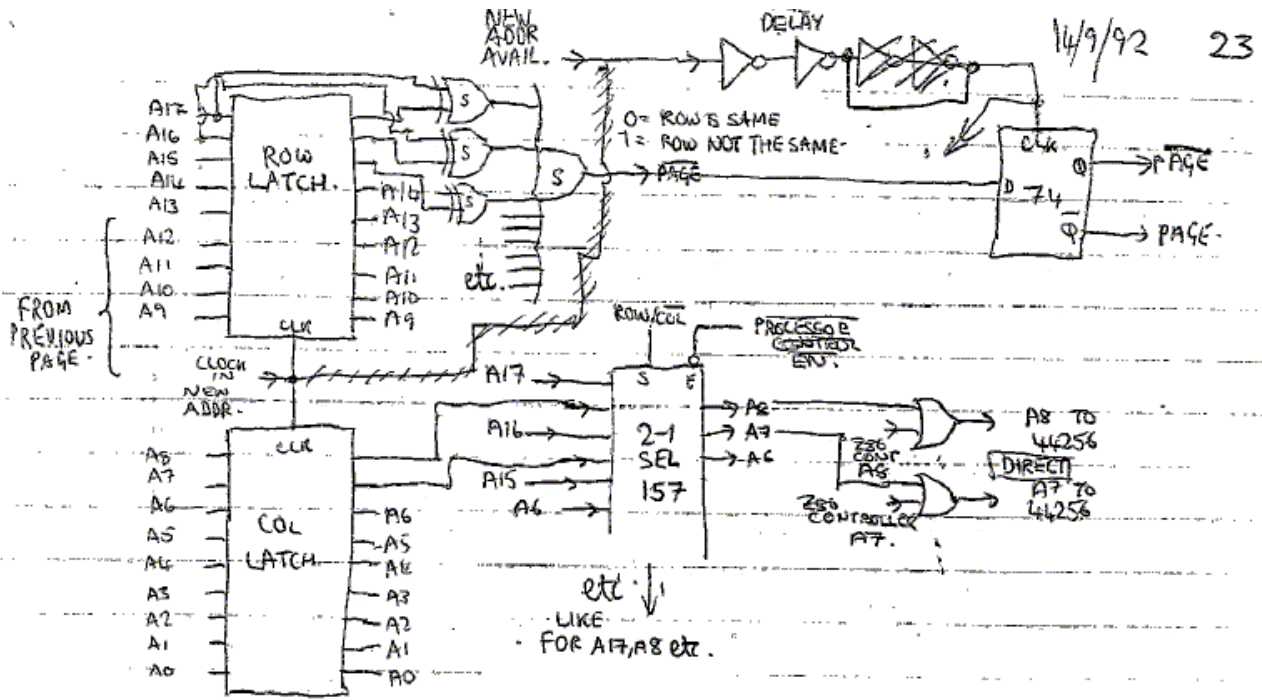 14/9/92 23
NEW
ADDR
AVAIL.
DELAY
A17
A16
A15
A14
A13
A12
A11
A10
A9
ROW
LATCH.
CLK
A14
A13
A12
A11
A10
A9
S
S
S
S
etc.
0= ROW IS SAME
1= ROW NOT THE SAME
PAGE
CLK
D
74
Q
Q
PAGE
PAGE.
FROM
PREVIOUS
PAGE.
CLOCK
IN
NEW
ADDR.
ROW/COL
PROCESSOR
CONTROL
EN.
A17
A16
A15
A6
S E
2-1
SEL
157
A8
A7
A6
Z80
CONT
A8
Z80
CONTROLLER
A7.
A8 TO
44256
DIRECT
A7 TO
44256
etc.
LIKE
FOR A17, A8 etc.
CLK
COL
LATCH
A8
A7
A6
A5
A4
A3
A2
A1
A0
A6
A5
A4
A3
A2
A1
A0